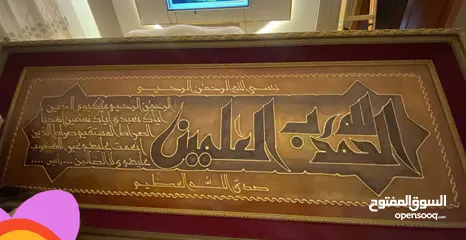 بسم الله الرحمن الرحيم
الحمد لله رب العلمين
الرحمن الرحيم ملك يوم الدين
اياك نعبد و اياك نستعين اهدنا
الصراط المستقيم صراط الذين
انعمت عليهم غير المغضوب
عليهم و لا الضالين ... امين ...
صدق الله العظيم
السوق المفتوح
opensooq.com